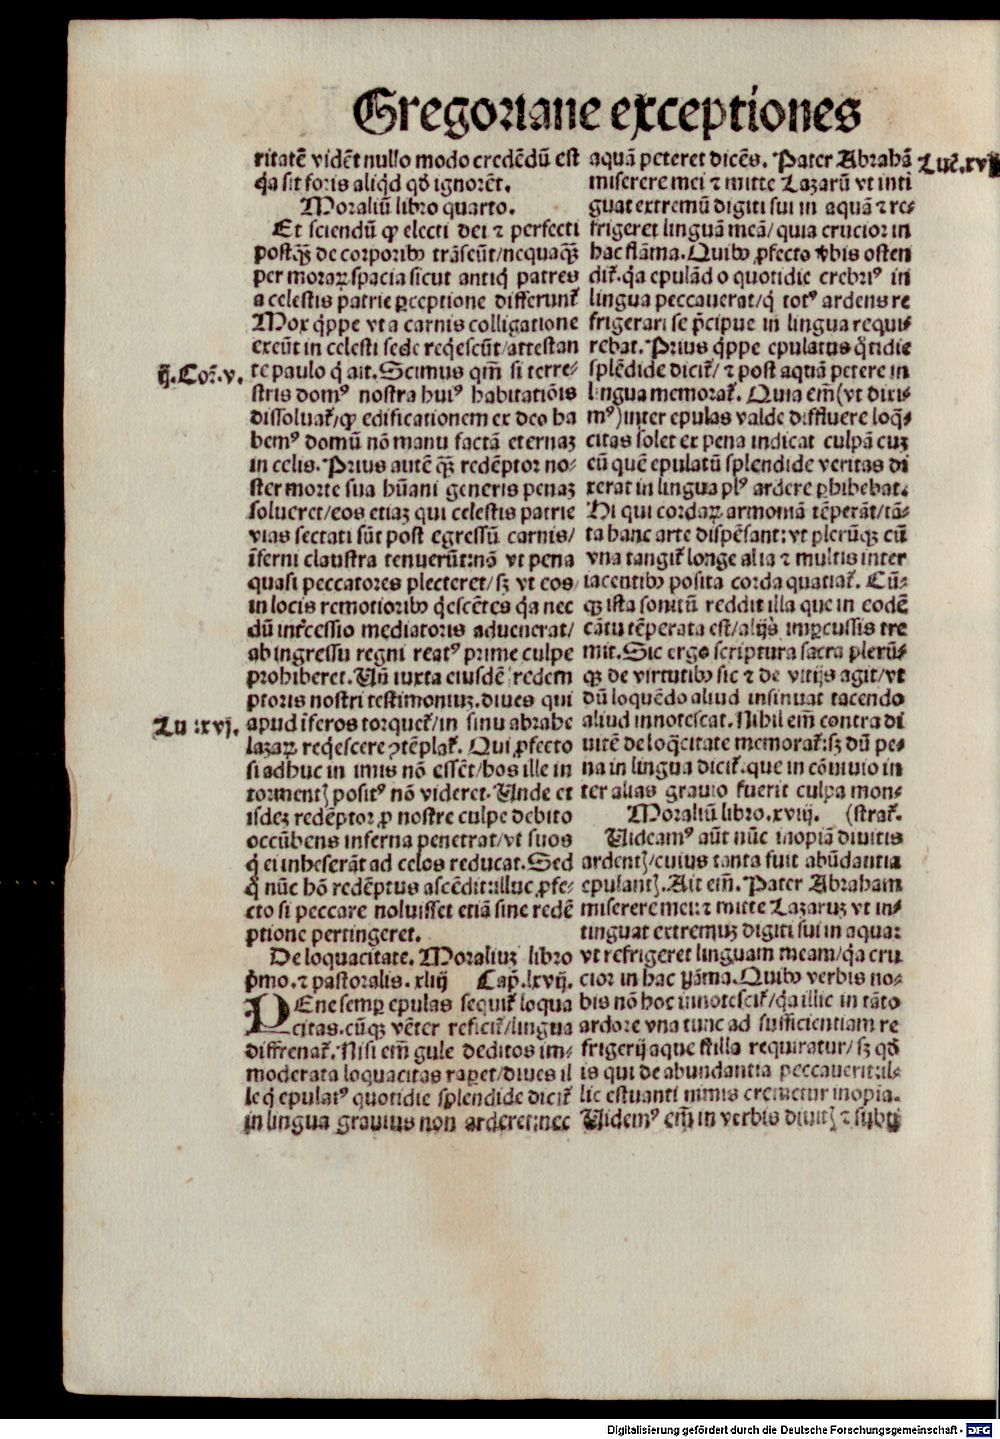 Gregoriane exceptiones
ritatē vidēt nullo modo credēdū est
q̇a sit foris aliq̇d qđ ignorēt.
Moraliū libro quarto.
Et sciendū ꝙ electi dei ⁊ perfecti
postq̄ꝫ de corporibꝰ trāseūt/nequaq̄ꝫ
per moraꝝ spacia sicut antiq̇ patres
a celestis patrie ꝑceptione differunt᷑
Mox q̇ppe vt a carnis colligatione
exeūt in celesti sede req̇escūt/attestan
te paulo q̇ ait. Scimus qm̄ si terre⸗
stris domꝰ nostra huiꝰ habitatiōis
dissoluat᷑/ꝙ edificationem ex deo ha
bemꝰ domū nō manu factā eternaꝫ
in celis. Prius autē q̄ꝫ redēptor no⸗
ster morte sua hūani generis penaꝫ
solueret/eos etiaꝫ qui celestis patrie
vias sectati sūt post egressū carnis/
īferni claustra tenuerūt:nō vt pena
quasi peccatores plecteret/sꝫ vt eos
in locis remotioribꝰ q̇escētes q̇a nec
dū int᷑cessio mediatoris aduenerat/
ab ingressu regni reatꝰ prime culpe
prohiberet. Vn̄ iuxta eiusdē redem
ptoris nostri testimoniuꝫ. diues qui
apud īferos torquet᷑/in sinu abrahe
lazaꝝ req̇escere ꝯtēplat᷑. Qui ꝓfecto
si adhuc in imis nō essēt/hos ille in
tormentꝭ positꝰ nō videret. Vnde et
isdeꝫ redēptor ꝓ nostre culpe debito
occūbens inferna penetrat/vt suos
q̇ ei inheserāt ad celos reducat. Sed
q̇ nūc hō redēptus ascēdit:illuc ꝓfe⸗
cto si peccare noluisset etiā sine redē
ptione pertingeret.
De loquacitate. Moraliuꝫ libro
p̄mo. ⁊ pastoralis. xliij Cap̄. lxvij.
PEne semꝑ epulas sequit᷑ loqua
citas. cūqꝫ vēter reficit᷑/lingua
diffrenat᷑. Nisi em̄ gule deditos im⸗
moderata loquacitas raperet/diues il
le q̇ epulatꝰ quotidie splendide dicit᷑
in lingua grauius non arderet:nec
ij̄. Cor̄. v.
Lu :xvj.
aquā peteret dicēs. Pater Abrahā
miserere mei ⁊ mitte Lazarū vt inti
guat extremū digiti sui in aquā ⁊ re⸗
frigeret linguā meā/ quia crucior in
hac flāma. Quibꝰ ꝓfecto v̄bis osten
dit᷑. q̇a epulādo quotidie crebriꝰ in
lingua peccauerat/q̇ totꝰ ardens re
frigerari se p̄cipue in lingua requi⸗
rebat. Prius q̇ppe epulatus q̇tidie
splēdide dicit᷑/ ⁊ post aquā petere in
lingua memorat᷑. Quia em̄ (vt dixi⸗
mꝰ) inter epulas valde diffluere loq̇⸗
citas solet ex pena indicat culpā cuꝫ
eū quē epulatū splendide veritas di
xerat in lingua plꝰ ardere ꝑhibebat.
Hi qui cordaꝝ armoniā tēperāt/tā⸗
ta hanc arte dispēsant: vt plerūqꝫ cū
vna tangit᷑ longe alia ⁊ multis inter
iacentibꝰ posita corda quatiat᷑. Cū⸗
qꝫ ista sonitū reddit illa que in eodē
cātu tēperata est/alijs imꝑcussis tre
mit. Sic ergo scriptura sacra plerū⸗
qꝫ de virtutibꝰ sic ⁊ de vitijs agit/vt
dū loquēdo aliud insinuat tacendo
aliud innotescat. Nihil em̄ contra di
uitē de loq̇citate memorat᷑:sꝫ dū pe⸗
na in lingua dicit᷑. que in cōuiuio in
ter alias grauio fuerit culpa mon⸗
Moraliū libro. xviij. (strat᷑.
Videamꝰ aūt nūc inopiā diuitis
ardentꝭ/cuius tanta fuit abūdantia
epulantꝭ. Ait em̄. Pater Abraham
miserere mei:⁊ mitte Lazaruꝫ vt in⸗
tinguat extremuꝫ digiti sui in aqua:
vt refrigeret linguam meam/q̇a cru
cior in hac flāma. Quibꝰ verbis no⸗
bis nō hoc innotescit᷑/q̇a illic in tāto
ardore vna tunc ad sufficientiam re
frigerij aque stilla requiratur/ sꝫ qđ
is qui de abundantia peccauerit:il⸗
lic estuanti nimis cremetur inopia.
Videmꝰ em̄ in verbis diuitꝭ ⁊ subti
Luc̄. xvj
Digitalisierung gefördert durch die Deutsche Forschungsgemeinschaft - DFG